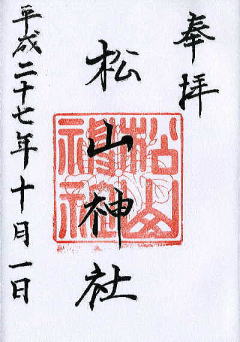 奉拝
松山神社
平成二十七年十月一日